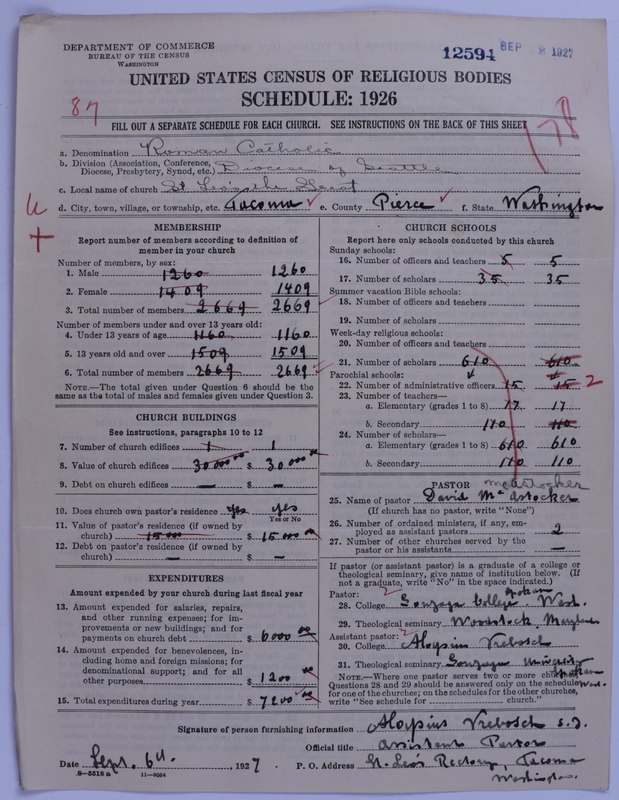 DEPARTMENT OF COMMERCE
BUREAU OF THE CENSUS
WASHINGTON
12594 SEP 8 1927
UNITED STATES CENSUS OF RELIGIOUS BODIES
SCHEDULE: 1926
87
178
FILL OUT A SEPARATE SCHEDULE FOR EACH CHURCH. SEE INSTRUCTIONS ON THE BACK OF THIS SHEET
a. Denomination Roman Catholic
b. Division (Association, Conference, Diocese, Presbytery, Synod, etc.) Diocese of Seattle
c. Local name of church St Leo's the Great
d. City, town, village, or township, etc. Tacoma e. County Pierce f. State Washington
MEMBERSHIP
Report number of members according to definition of member in your church
Number of members, by sex:
1. Male 1260 1260
2. Female 1409 1409
3. Total number of members 2669 2669
Number of members under and over 13 years old:
4. Under 13 years of age 1160 1160
5. 13 years old and over 1509 1509
6. Total number of members 2669 2669
NOTE.—The total given under Question 6 should be the same as the total of males and females given under Question 3.
CHURCH BUILDINGS
See instructions, paragraphs 10 to 12
7. Number of church edifices 1 1
8. Value of church edifices 30000 00 $ 30.000 00
9. Debt on church edifices — $ —
10. Does church own pastor's residence yes yes
Yes or No
11. Value of pastor's residence (if owned by church) 15.000 $ 15.000 00
12. Debt on pastor's residence (if owned by church) — $ —
EXPENDITURES
Amount expended by your church during last fiscal year
13. Amount expended for salaries, repairs, and other running expenses; for improvements or new buildings; and for payments on church debt $ 6000 00
14. Amount expended for benevolences, including home and foreign missions; for denominational support; and for all other purposes $ 1200 00
15. Total expenditures during year $ 7200 00
CHURCH SCHOOLS
Report here only schools conducted by this church
Sunday schools:
16. Number of officers and teachers 5 5
17. Number of scholars 35 35
Summer vacation Bible schools:
18. Number of officers and teachers
19. Number of scholars
Week-day religious schools:
20. Number of officers and teachers
21. Number of scholars 610 610
Parochial schools:
22. Number of administrative officers 15 15 2
23. Number of teachers—
a. Elementary (grades 1 to 8) 17 17
b. Secondary 110 110
24. Number of scholars—
a. Elementary (grades 1 to 8) 610 610
b. Secondary 110 110
PASTOR McAstocker
25. Name of pastor David McAstocker
(If church has no pastor, write "None")
26. Number of ordained ministers, if any, employed as assistant pastors 2
27. Number of other churches served by the pastor or his assistants —
If pastor (or assistant pastor) is a graduate of a college or theological seminary, give name of institution below. (If not a graduate, write "No" in the space indicated.)
Pastor:
28. College Gonzaga College Spokane Wash.
29. Theological seminary Woodstock, Maryland
Assistant pastor:
30. College Aloysius Vrebosch
31. Theological seminary Gonzaga University Spokane Wash.
NOTE.—Where one pastor serves two or more churches, Questions 28 and 29 should be answered only on the schedule for one of the churches; on the schedules for the other churches, write "See schedule for church."
Signature of person furnishing information Aloysius Vrebosch S.J.
Official title Assistant Pastor
Date Sept. 6th, 1927. P. O. Address St. Leo's Rectory, Tacoma
Washington.
8—5518a 11—9554